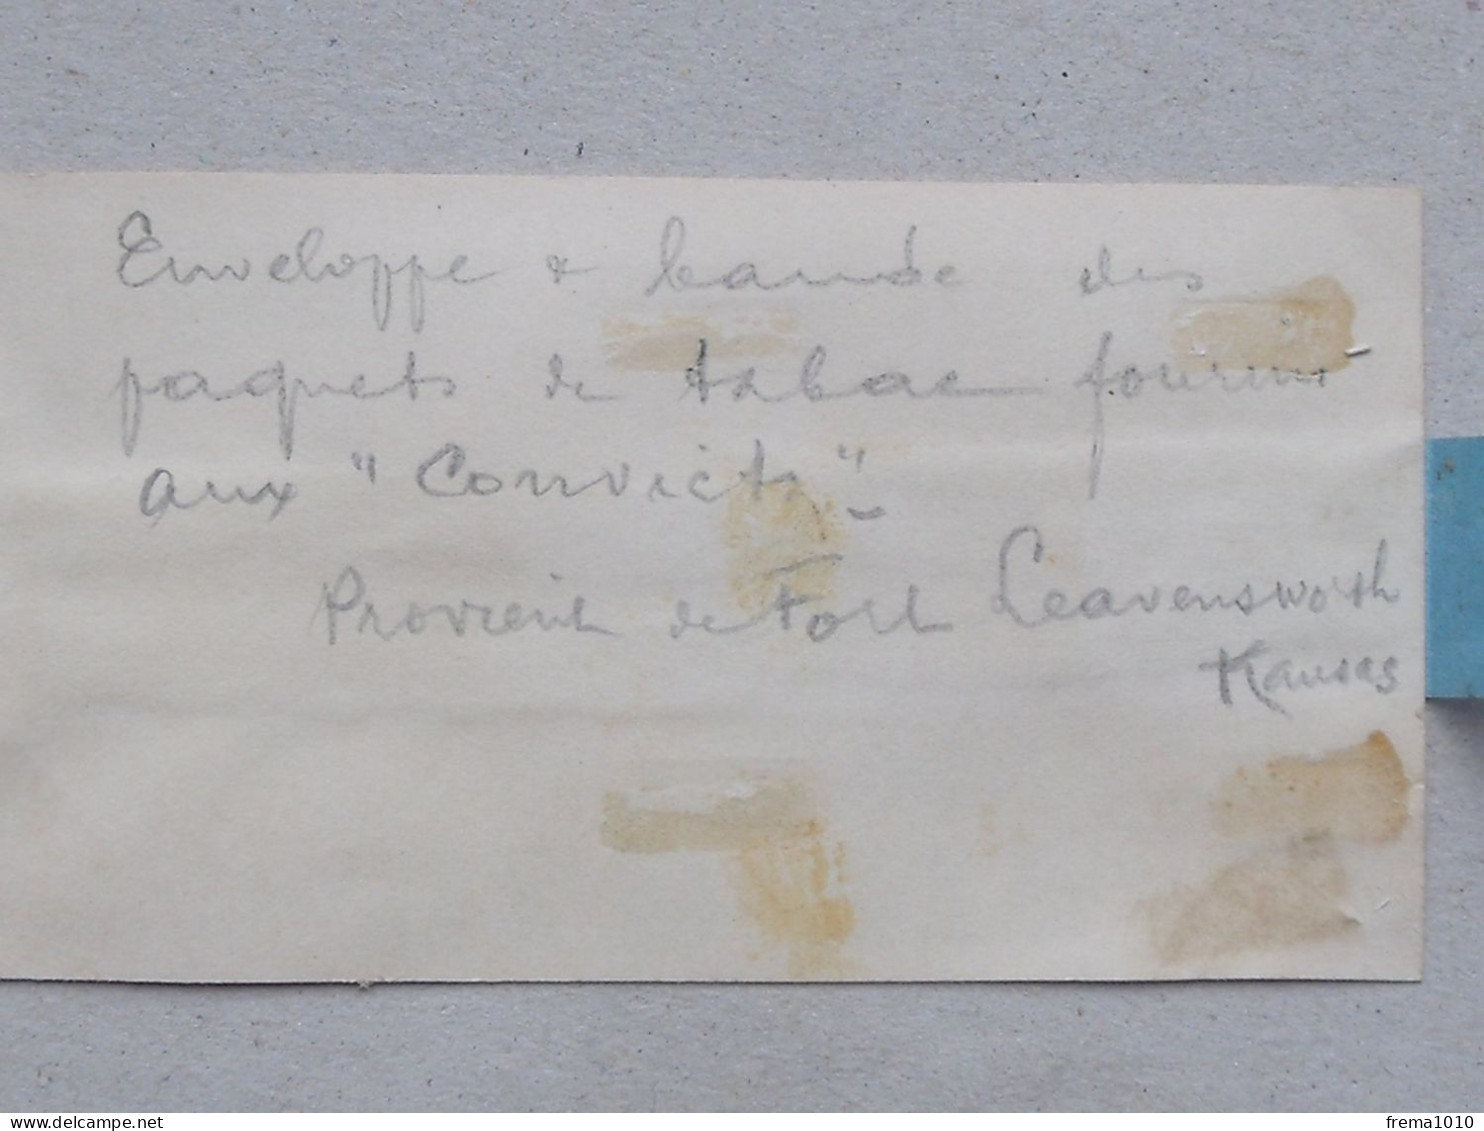 Enveloppe & bande des
paquets de tabac fourni
aux "Convicts"
Provient de Fort Leavensworth
Kansas
www.delcampe.net
frema1010